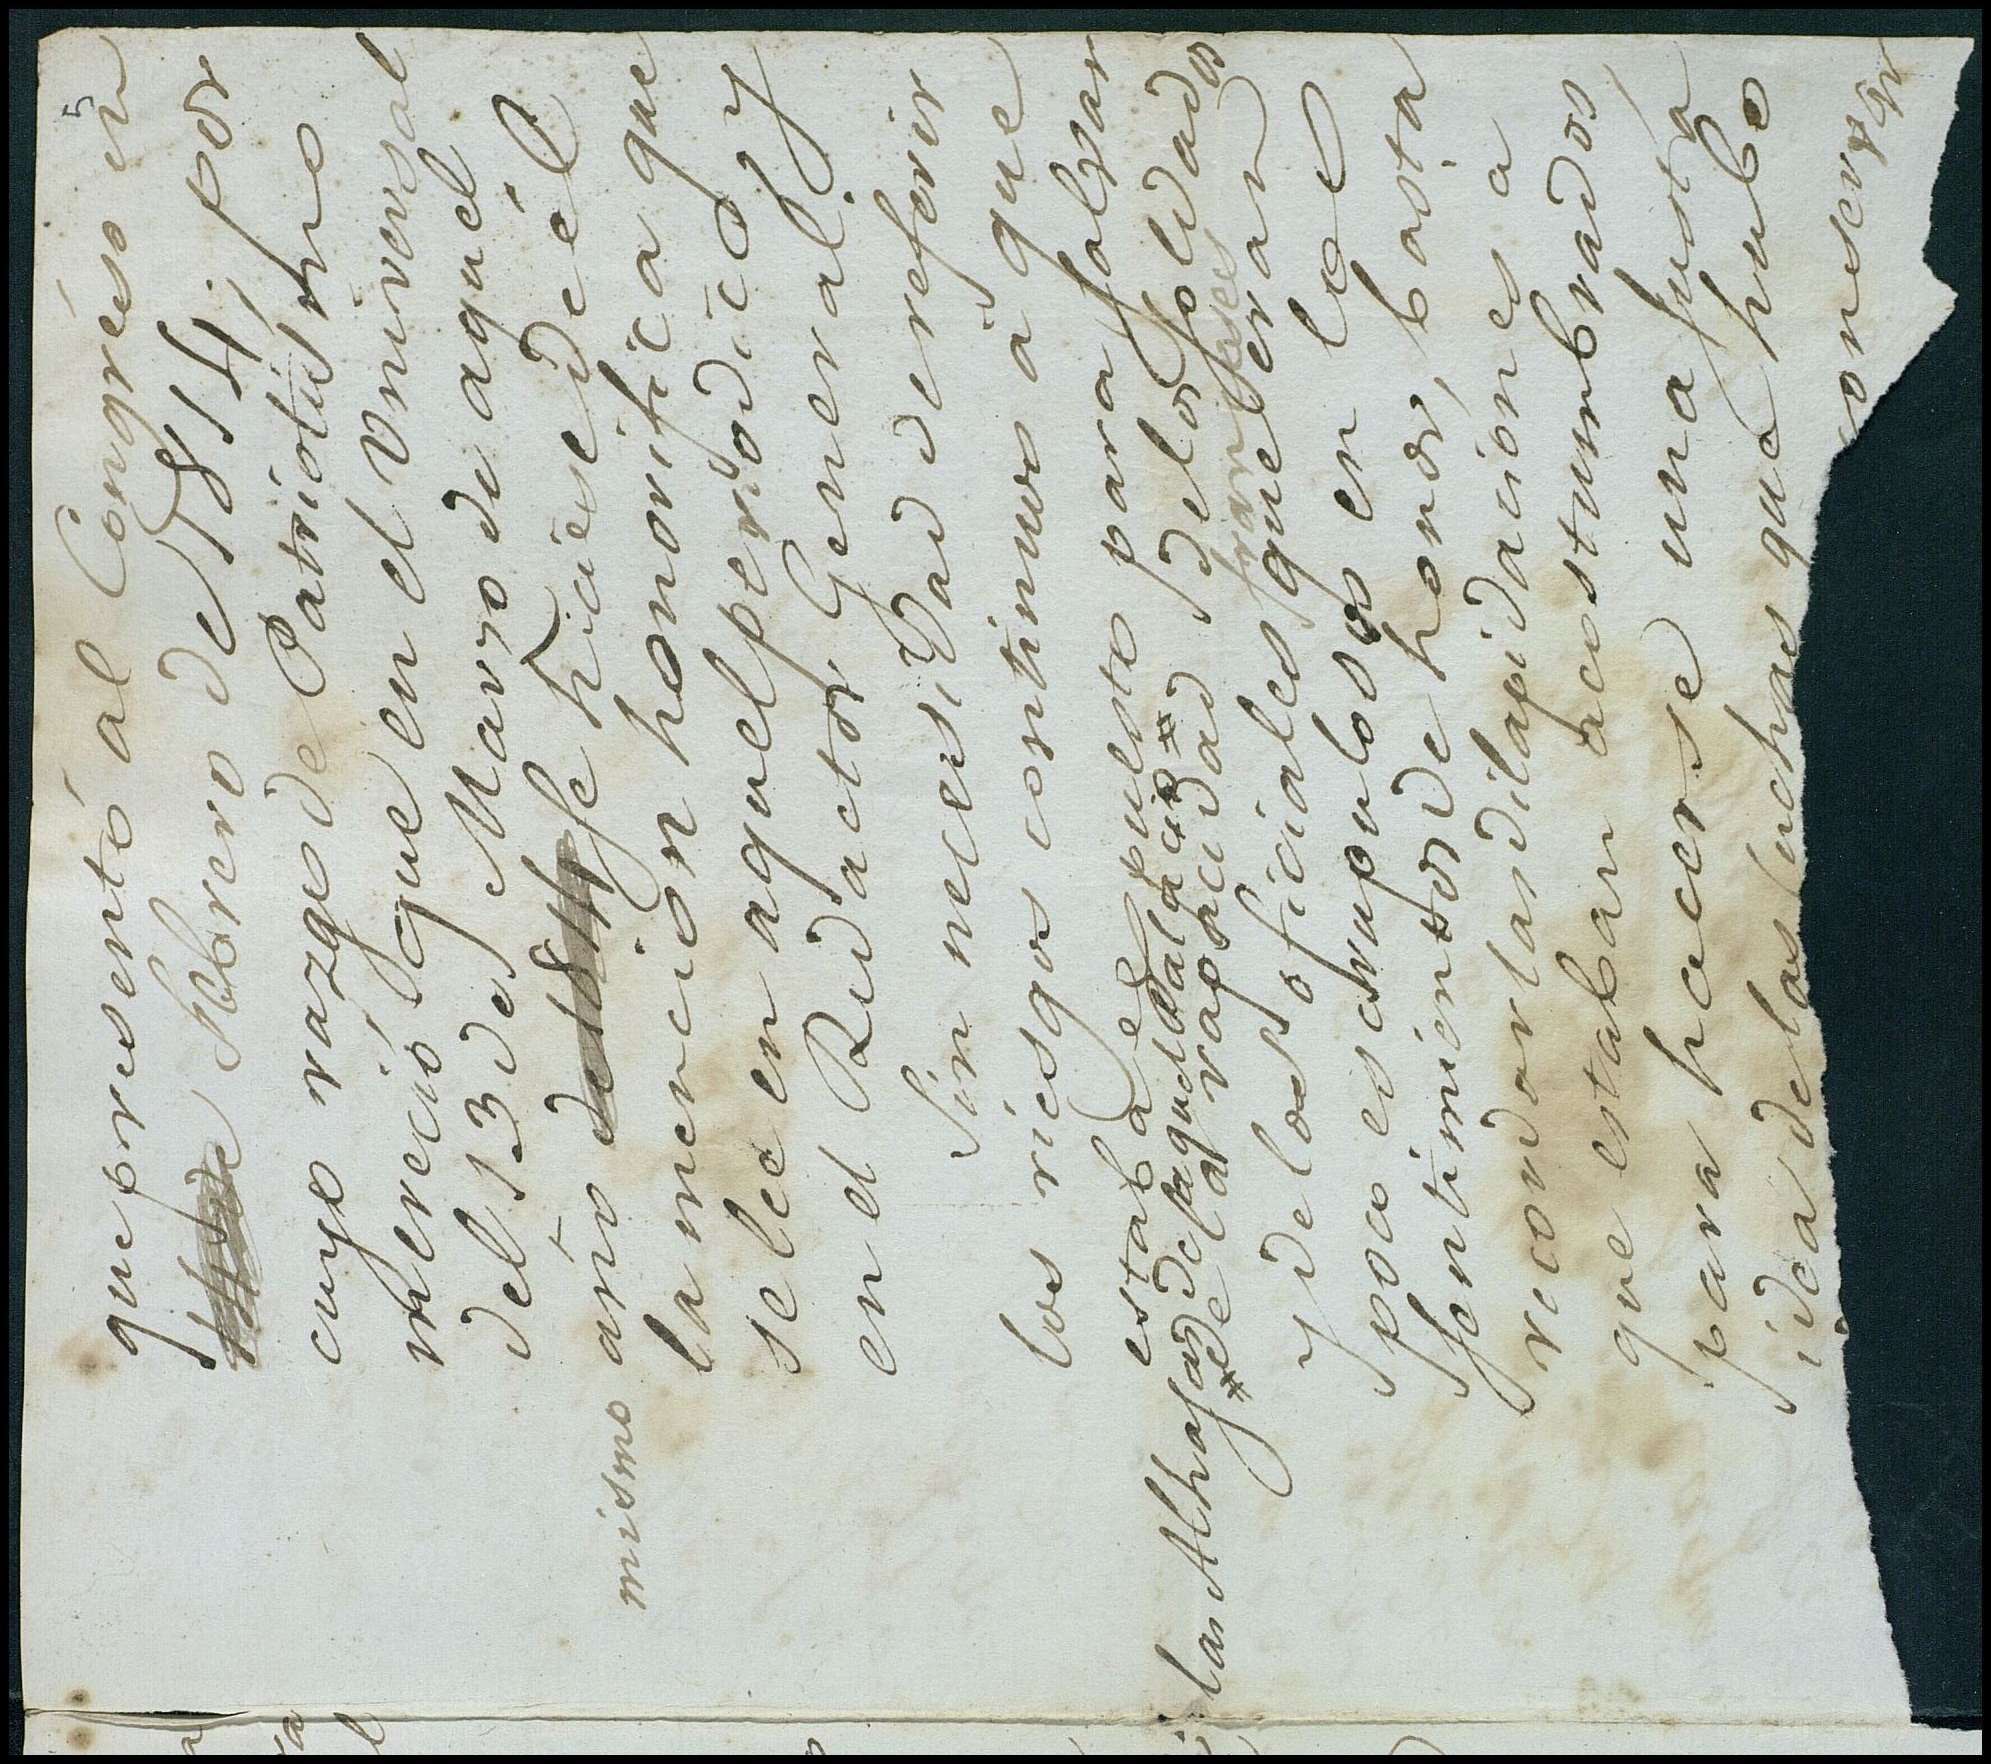 que presentó al Congréso en
14 de Febrero de 1814, por
cuyo razgo de Patriotismo
mereció que en el Universal
del 13 de Marzo de aquel
mismo año de 1814 se hiciese de él
la mencion honorífica que
se lee en aquel periódico y
en el Redactor General.
Sin necesidad de referir
los riesgos continuos á que
estaba el puesto para salvar
las Alhajas de la rapacidad de los soldados
franceses
y de los oficiales que eran
poco escrupulosos en los
sentimientos de honor, basta
recordar las dilapidaciones a
que estaban acostumbrados
para hacerse una justa
idea de las luchas que hubo
conservar